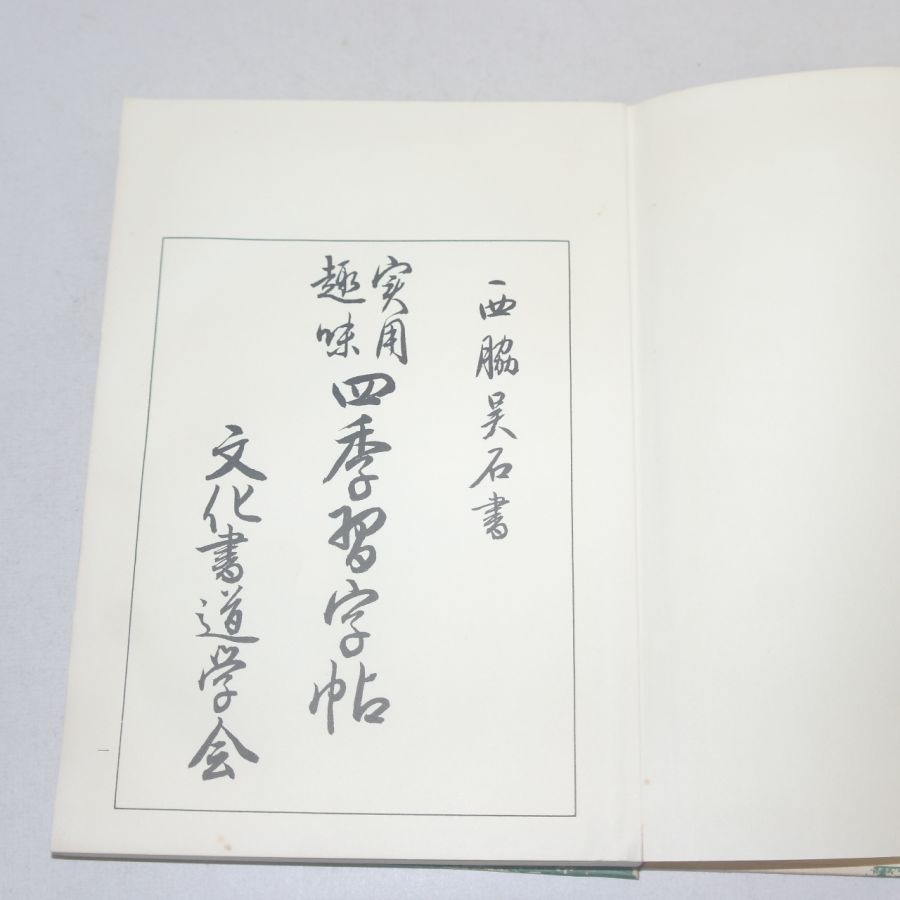 西脇呉石書
実用
趣味
四季習字帖
文化書道学会
一